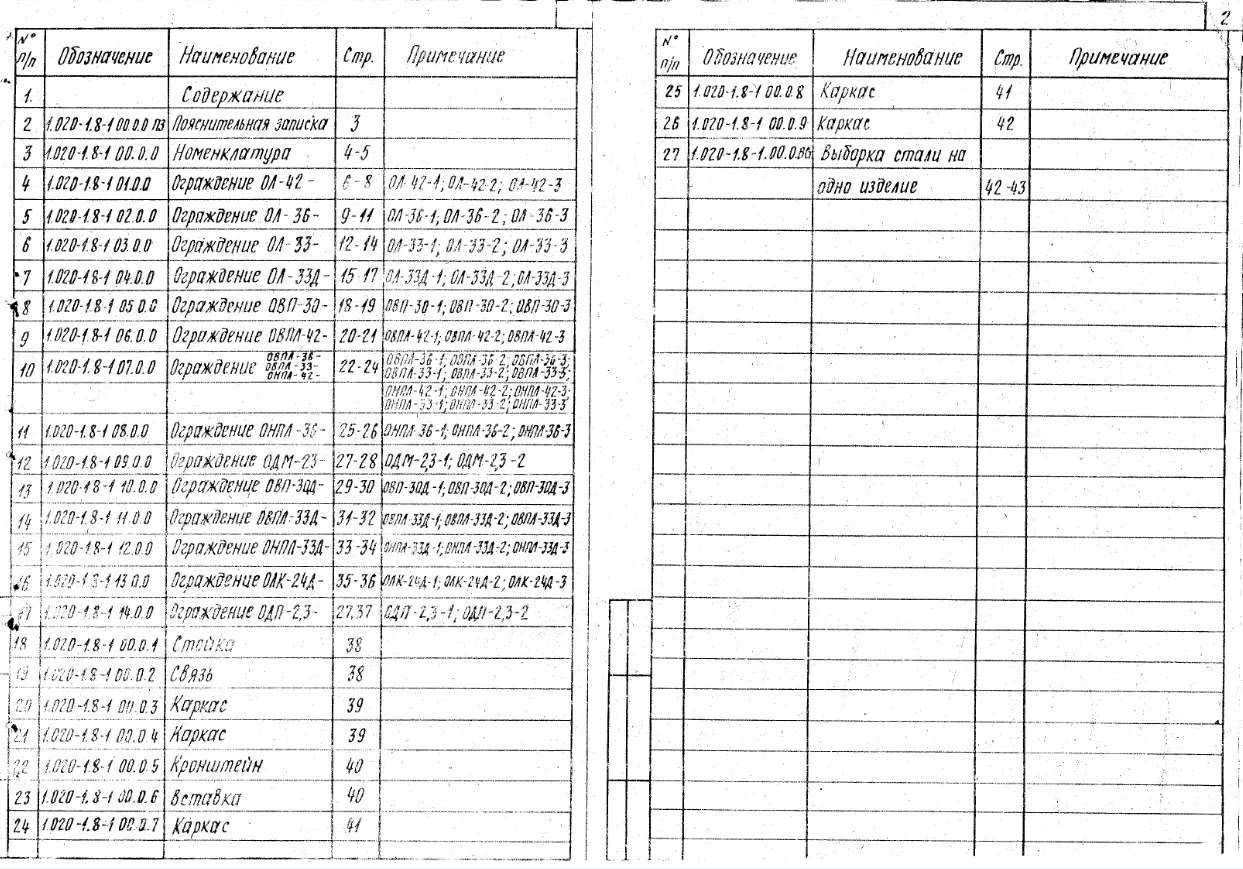 2
N° п/п Обозначение Наименование Стр. Примечание
1. Содержание
2 1.020-1.8-1 00.0.0 ПЗ Пояснительная записка 3
3 1.020-1.8-1 00.0.0 Номенклатура 4-5
4 1.020-1.8-1 01.0.0 Ограждение ОЛ-42- 6-8 ОЛ-42-1; ОЛ-42-2; ОЛ-42-3
5 1.020-1.8-1 02.0.0 Ограждение ОЛ-36- 9-11 ОЛ-36-1; ОЛ-36-2; ОЛ-36-3
6 1.020-1.8-1 03.0.0 Ограждение ОЛ-33- 12-14 ОЛ-33-1; ОЛ-33-2; ОЛ-33-3
7 1.020-1.8-1 04.0.0 Ограждение ОЛ-33Д- 15-17 ОЛ-33Д-1; ОЛ-33Д-2; ОЛ-33Д-3
8 1.020-1.8-1 05.0.0 Ограждение ОВП-30- 18-19 ОВП-30-1; ОВП-30-2; ОВП-30-3
9 1.020-1.8-1 06.0.0 Ограждение ОВПЛ-42- 20-21 ОВПЛ-42-1; ОВПЛ-42-2; ОВПЛ-42-3
10 1.020-1.8-1 07.0.0 Ограждение ОВПЛ-36- ОВПЛ-33- ОНПЛ-42- 22-24 ОВПЛ-36-1; ОВПЛ-36-2; ОВПЛ-36-3;
ОВПЛ-33-1; ОВПЛ-33-2; ОВПЛ-33-3;
ОНПЛ-42-1; ОНПЛ-42-2; ОНПЛ-42-3;
ОНПЛ-33-1; ОНПЛ-33-2; ОНПЛ-33-3
11 1.020-1.8-1 08.0.0 Ограждение ОНПЛ-36- 25-26 ОНПЛ-36-1; ОНПЛ-36-2; ОНПЛ-36-3
12 1.020-1.8-1 09.0.0 Ограждение ОДМ-23- 27-28 ОДМ-2,3-1; ОДМ-2,3-2
13 1.020-1.8-1 10.0.0 Ограждение ОВП-30Д- 29-30 ОВП-30Д-1; ОВП-30Д-2; ОВП-30Д-3
14 1.020-1.8-1 11.0.0 Ограждение ОВПЛ-33Д- 31-32 ОВПЛ-33Д-1; ОВПЛ-33Д-2; ОВПЛ-33Д-3
15 1.020-1.8-1 12.0.0 Ограждение ОНПЛ-33Д- 33-34 ОНПЛ-33Д-1; ОНПЛ-33Д-2; ОНПЛ-33Д-3
16 1.020-1.8-1 13.0.0 Ограждение ОЛК-24Д- 35-36 ОЛК-24Д-1; ОЛК-24Д-2; ОЛК-24Д-3
17 1.020-1.8-1 14.0.0 Ограждение ОДП-2,3- 27,37 ОДП-2,3-1; ОДП-2,3-2
18 1.020-1.8-1 00.0.1 Стойка 38
19 1.020-1.8-1 00.0.2 Связь 38
20 1.020-1.8-1 00.0.3 Каркас 39
21 1.020-1.8-1 00.0.4 Каркас 39
22 1.020-1.8-1 00.0.5 Кронштейн 40
23 1.020-1.8-1 00.0.6 Вставка 40
24 1.020-1.8-1 00.0.7 Каркас 41
N° п/п Обозначение Наименование Стр. Примечание
25 1.020-1.8-1 00.0.8 Каркас 41
26 1.020-1.8-1 00.0.9 Каркас 42
27 1.020-1.8-1.00.0 Выборка стали на
одно изделие 42-43